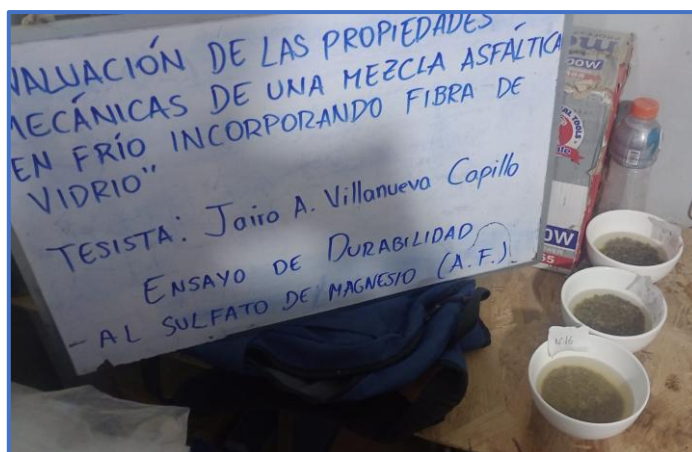 VALUACIÓN DE LAS PROPIEDADES
MECÁNICAS DE UNA MEZCLA ASFÁLTICA
EN FRÍO INCORPORANDO FIBRA DE
VIDRIO"
TESISTA: Jairo A. Villanueva Capillo
ENSAYO DE DURABILIDAD
- AL SULFATO DE MAGNESIO (A.F.).
N16